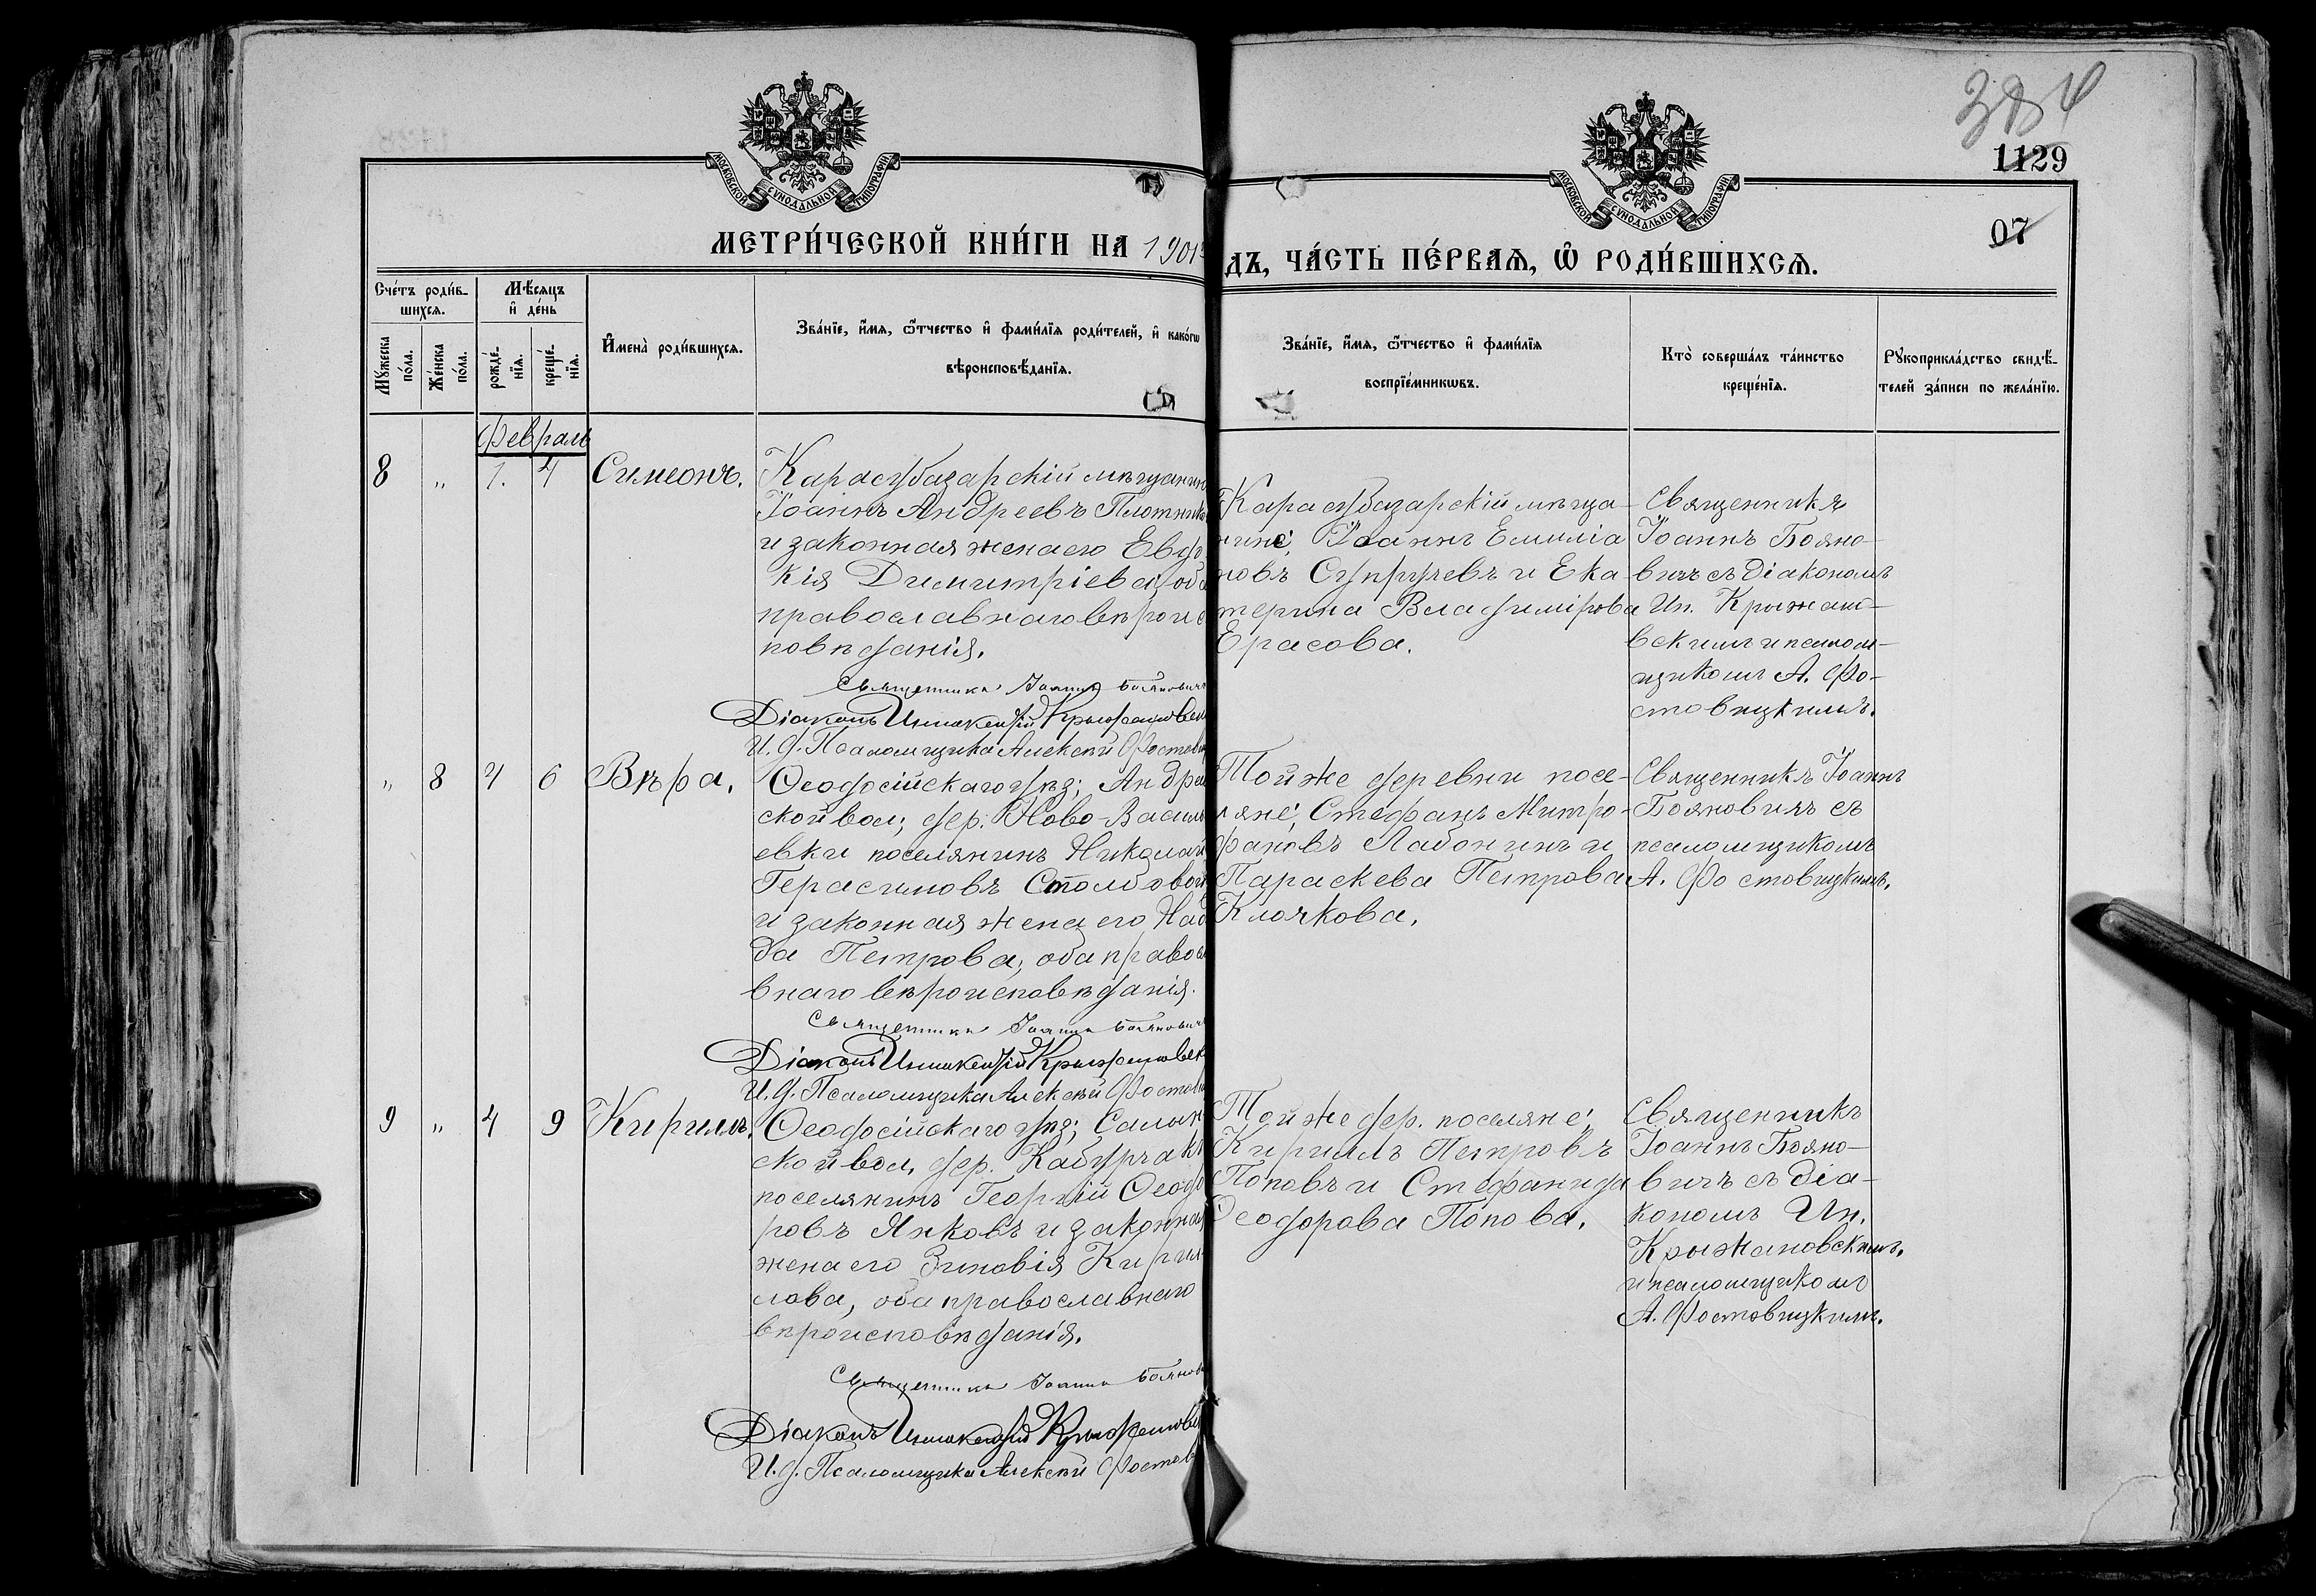 384
1129
07
МОСКОВСКОЙ СУНОДАЛЬНОЙ ТИПОГРАФІИ
МОСКОВСКОЙ СУНОДАЛЬНОЙ ТИПОГРАФІИ
МЕТРИ́ЧЕСКОЙ КНИ́ГИ НА 1901
ДЪ, ЧА́СТЬ ПЕ́РВАѦ, Ѡ҆ РОДИ́ВШИХСѦ.
Сче́тъ роди́в-
шихсѧ.
Мѣ́сѧцъ
и҆ де́нь
Мꙋ́жеска
по́ла.
Же́нска
по́ла.
рожде́-
нїѧ.
креще́-
нїѧ.
И҆мена̀ роди́вшихсѧ.
Зва́нїе, и҆́мѧ, ѻ҆́тчество и҆ фами́лїѧ роди́телей, и҆ како́гѡ
вѣроисповѣ́данїѧ.
Зва́нїе, и҆́мѧ, ѻ҆́тчество и҆ фами́лїѧ
воспрїе́мникѡвъ.
Кто̀ соверша́лъ та́инство
креще́нїѧ.
Рꙋкоприкла́дство свидѣ́-
телей за́писи по жела́нїю.
Февраль
8 " 1. 4 Симеонъ.
Карасубазарскій мѣщанин
Іоаннъ Андреевъ Плотник
и законная жена его Евдо
кія Димитріева, оба
православнаго вѣроис
повѣданія.
Священникъ Іоаннъ Бояновичъ
Діаконъ Иннокентій Крыжановск
И. д. Псаломщика Алексѣй Фостов
Карасубазарскій мѣща-
нинъ, Іоаннъ Емиліа
новъ Супручевъ и Ека-
терина Владимірова
Ерасова.
Священникъ
Іоаннъ Бояно-
вичъ съ діакономъ
Ин. Крыжано-
вскимъ и псалом-
щикомъ А. Фо-
стовицкимъ.
" 8 4 6 Вѣра.
Ѳеодосійскаго уѣз; Андре
ской вол; дер. Ново-Василь
евки поселянинъ Николай
Герасимовъ Столбовой
и законная жена его Над
да Петрова, оба правосл
внаго вѣроисповѣданія.
Священникъ Іоаннъ Бояновичъ
Діаконъ Иннокентій Крыжановск
И. д. Псаломщика Алексѣй Фостов
Той же деревни посе-
ляне, Стефанъ Митро-
фановъ Лабонинъ и
Параскева Петрова
Клочкова.
Священникъ Іоаннъ
Бояновичъ съ
псаломщикомъ
А. Фостовицкимъ.
9 " 4 9 Кириллъ.
Ѳеодосійскаго уѣз; Салын
ской вол, дер. Кабурчакъ
поселянинъ Георгій Ѳеодо
ровъ Янковъ и законная
жена его Зиновія Кирил
лова, оба православнаго
вѣроисповѣданія.
Священникъ Іоаннъ Боянов
Діаконъ Иннокентій Крыжановск
И. д. Псаломщика Алексѣй Фостов
Той же дер. поселяне,
Кириллъ Петровъ
Поповъ и Стефанида
Ѳеодорова Попова.
Священникъ
Іоаннъ Бояно-
вичъ съ діа-
кономъ Ин.
Крыжановскимъ.
и псаломщикомъ
А. Фостовицкимъ.